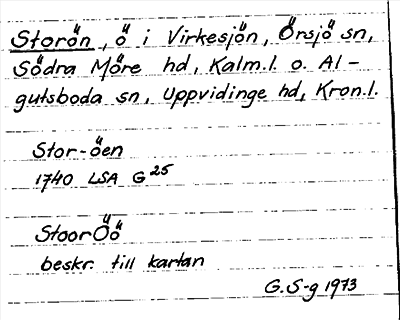 Storön, ö i Virkesjön, Örsjö sn,
Södra Möre hd, Kalm.l. o. Al-
gutsboda sn, Uppvidinge hd, Kron.l.
Stor-öen
1740 LSA G 25
StoorÖö
beskr. till kartan
G. S-g 1973